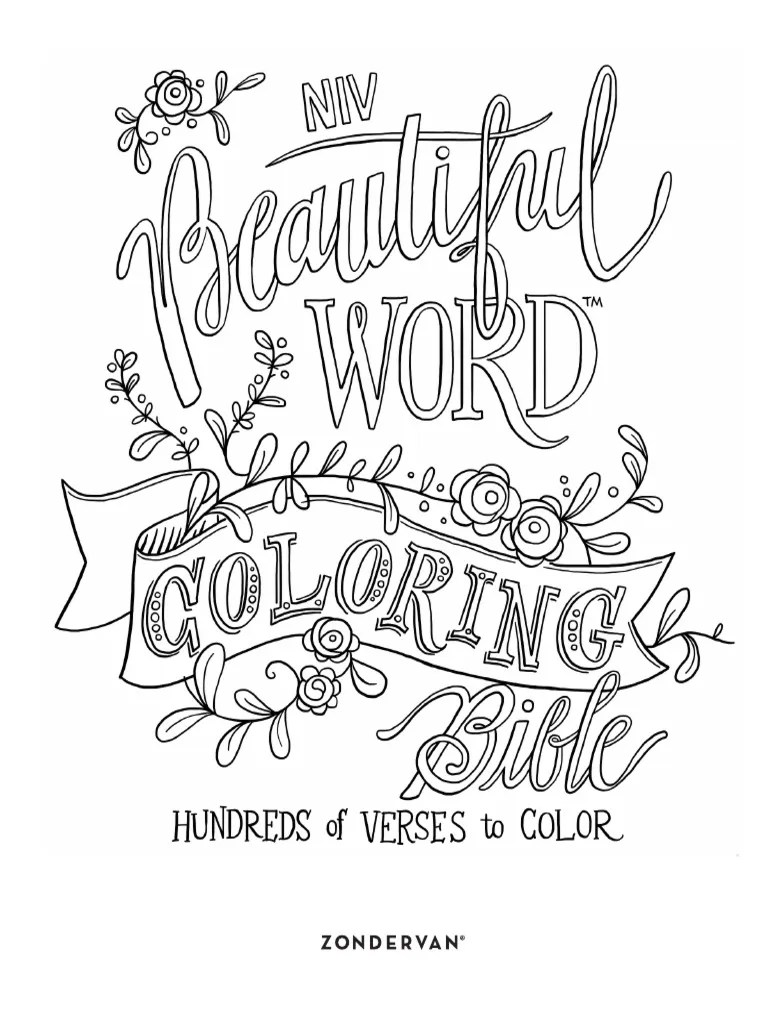 NIV
Beautiful
WORD™
COLORING
Bible
HUNDREDS of VERSES to COLOR
ZONDERVAN®